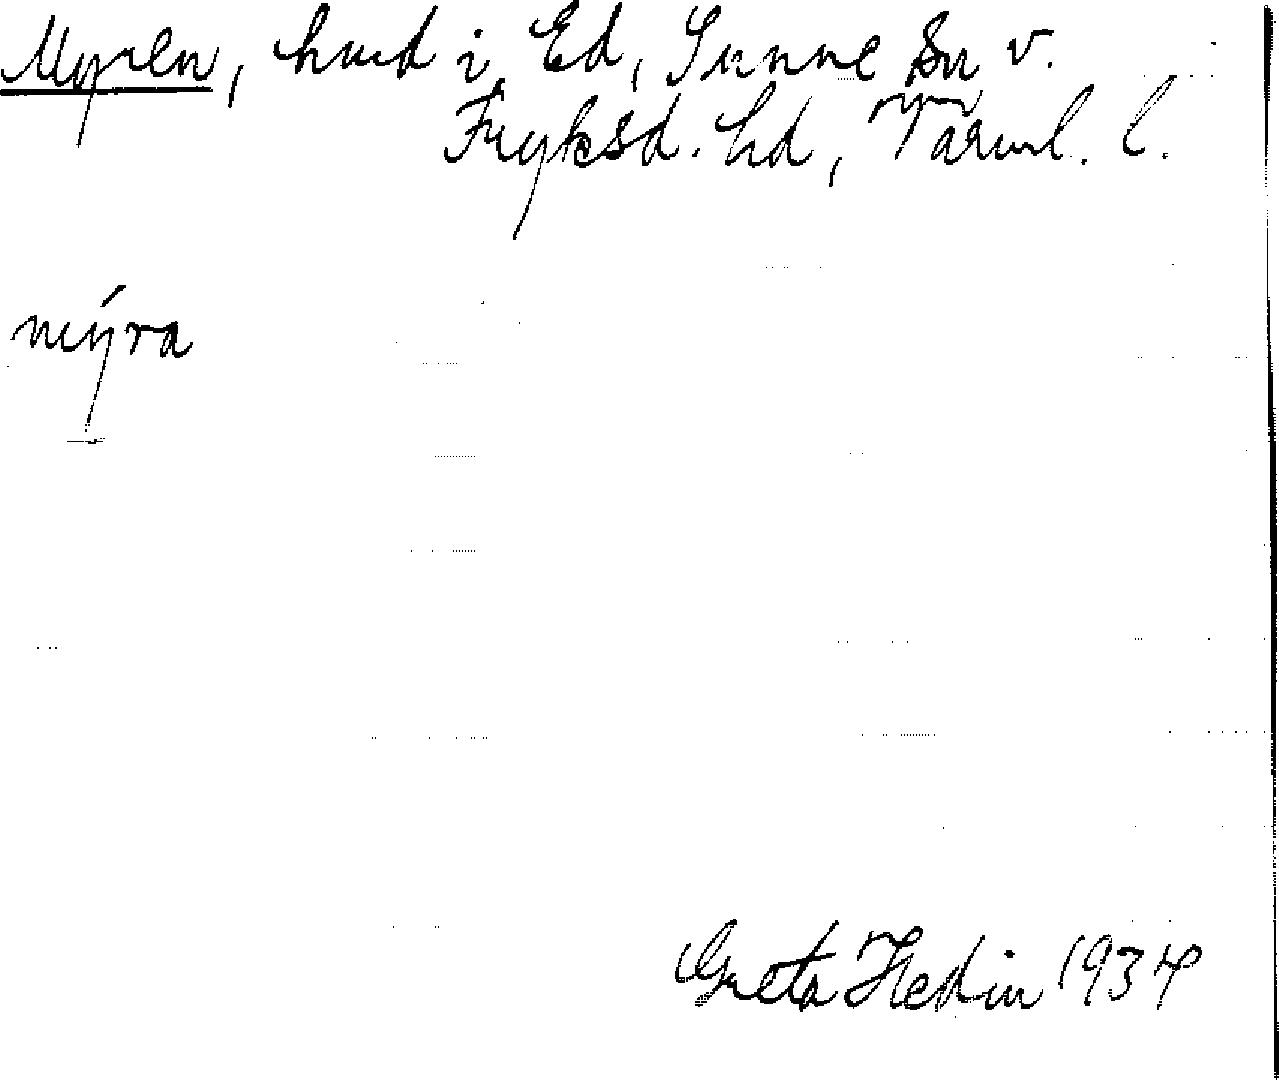 Myren, hmd i Ed, Sunne sn v.
Fryksd. hd, Värml. l.
mýra
Greta Hedin 1934